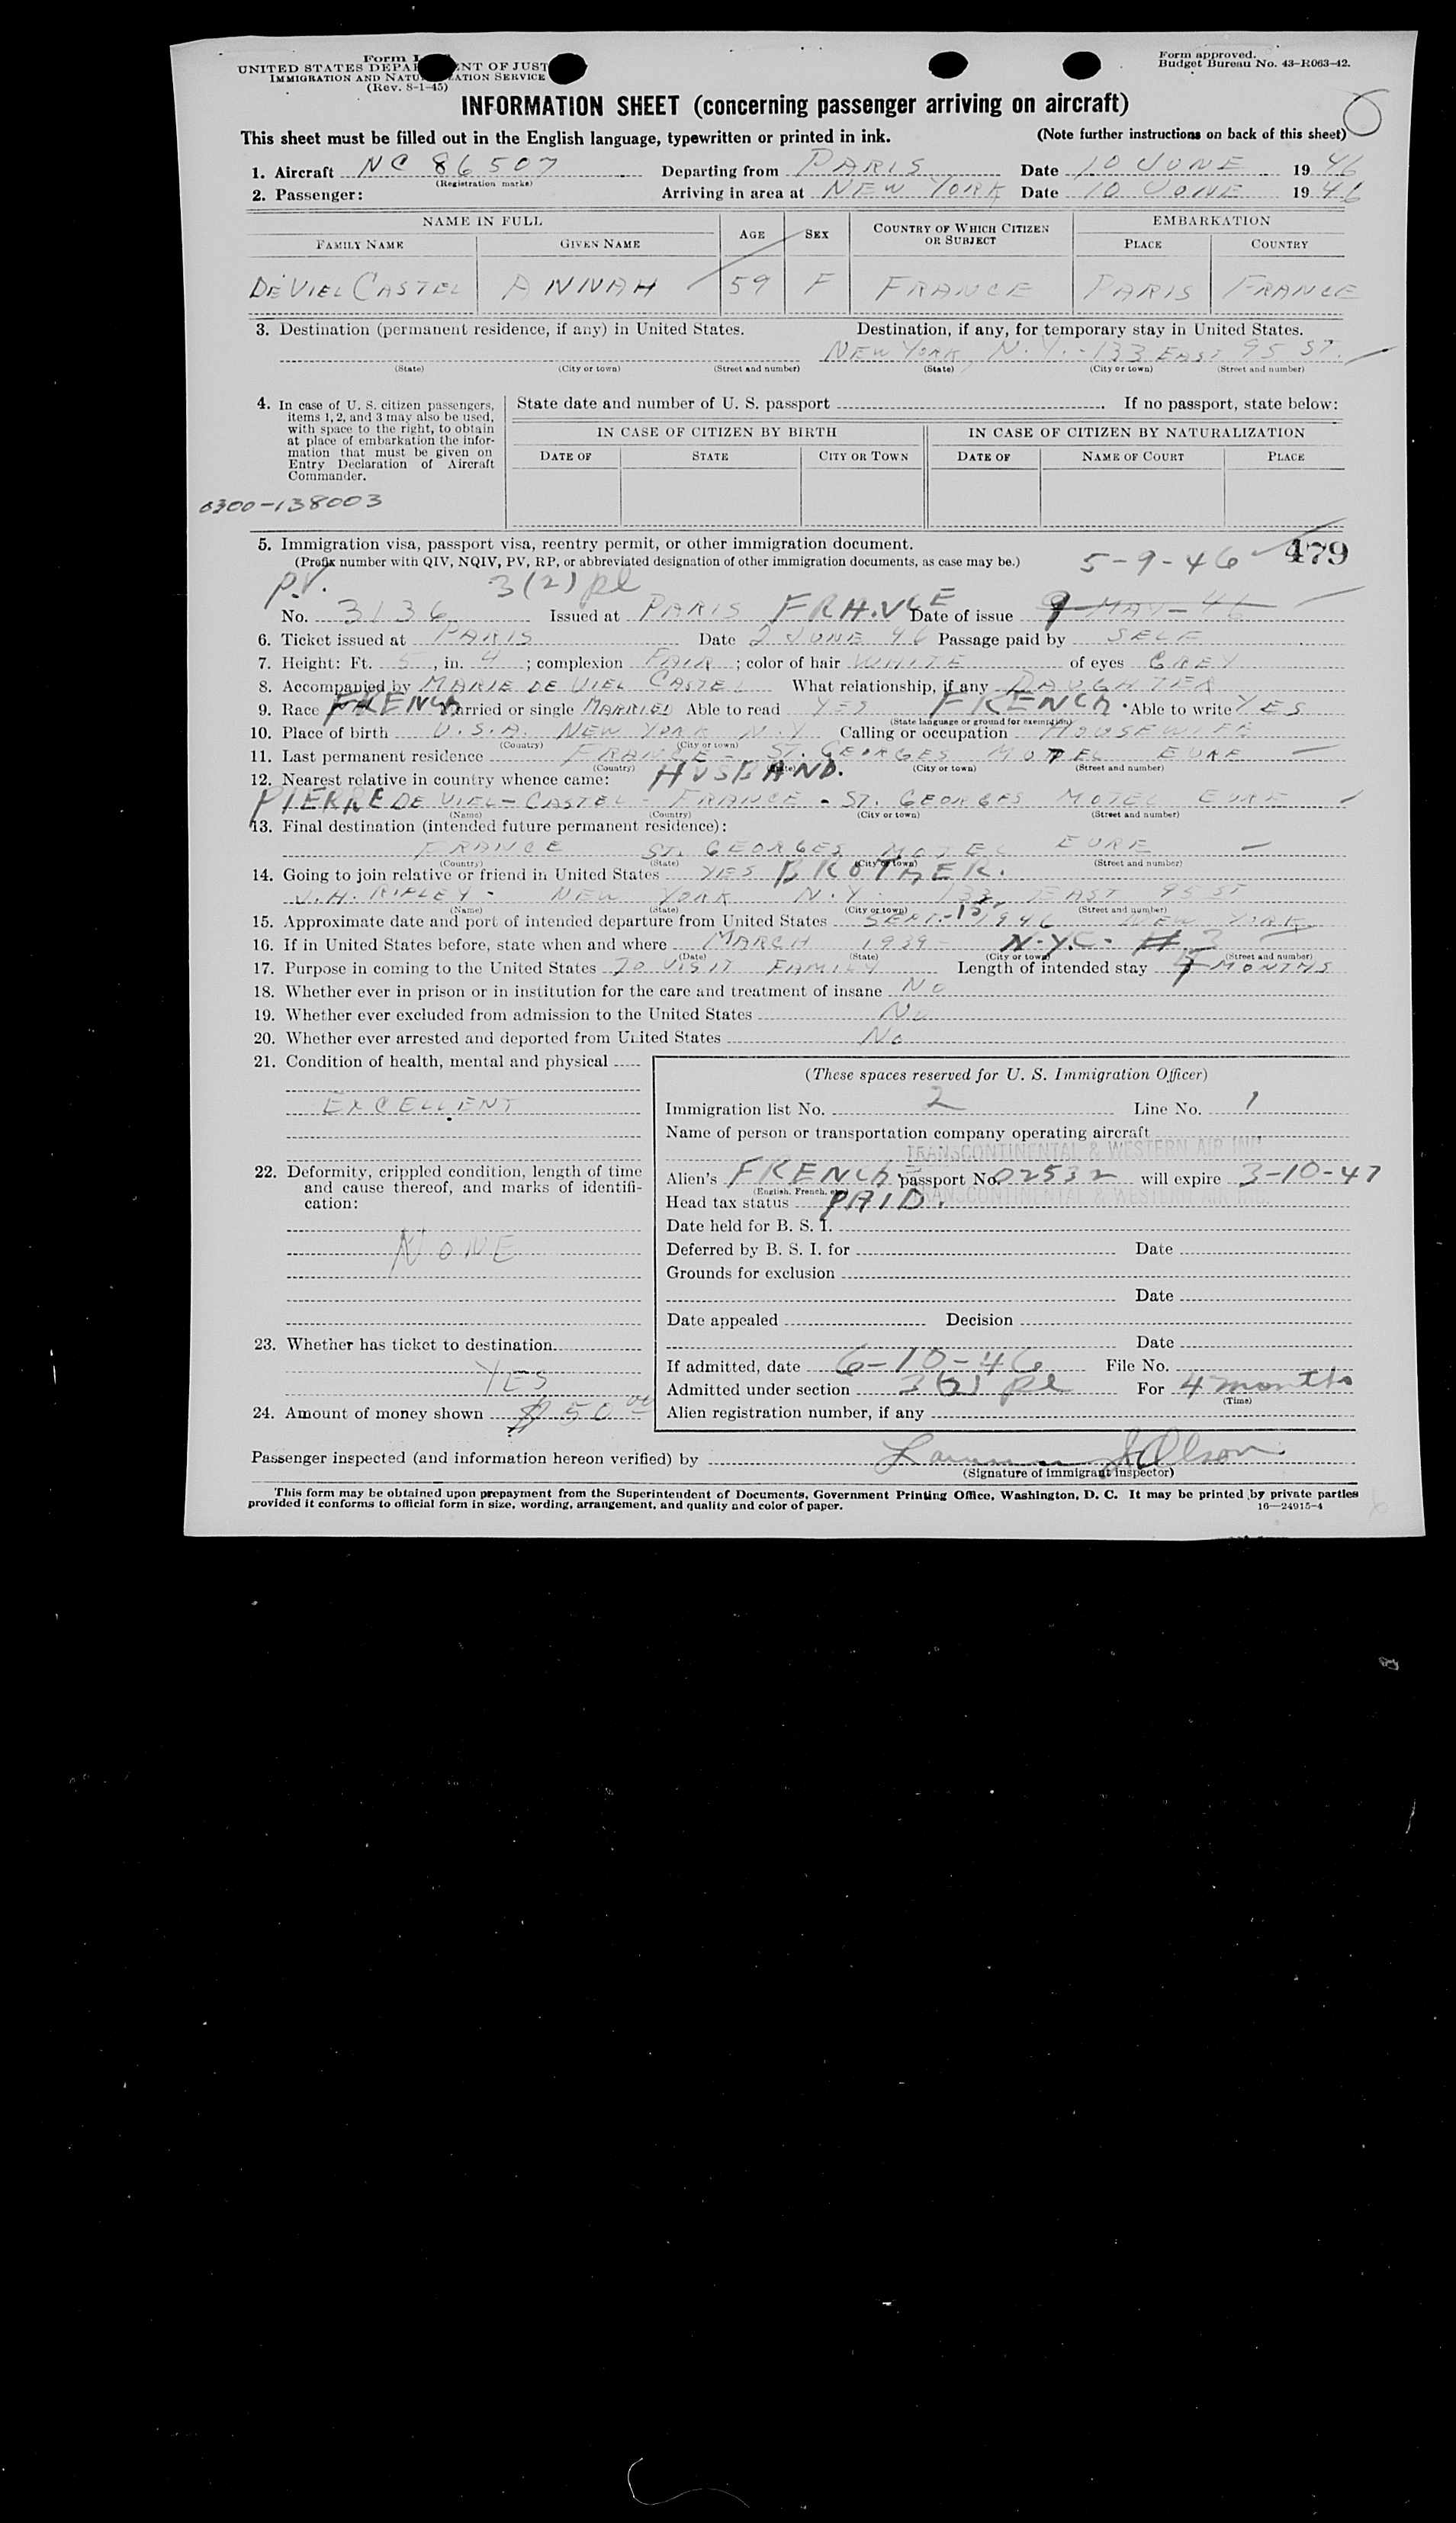 Form I
UNITED STATES DEPA NT OF JUST
IMMIGRATION AND NATU ATION SERVICE
(Rev. 8-1-45)
Form approved.
Budget Bureau No. 43-R063-42.
INFORMATION SHEET (concerning passenger arriving on aircraft)
This sheet must be filled out in the English language, typewritten or printed in ink. (Note further instructions on back of this sheet)
1. Aircraft NC 86507 Departing from PARIS Date 10 JUNE 1946
(Registration marks)
2. Passenger: Arriving in area at NEW YORK Date 10 JUNE 1946
NAME IN FULL AGE SEX COUNTRY OF WHICH CITIZEN OR SUBJECT EMBARKATION
FAMILY NAME GIVEN NAME PLACE COUNTRY
DE VIEL CASTEL ANNAH 59 F FRANCE PARIS FRANCE
3. Destination (permanent residence, if any) in United States. Destination, if any, for temporary stay in United States.
NEW YORK, N.Y. - 133 EAST 95 ST.
(State) (City or town) (Street and number) (State) (City or town) (Street and number)
4. In case of U. S. citizen passengers, items 1, 2, and 3 may also be used, with space to the right, to obtain at place of embarkation the information that must be given on Entry Declaration of Aircraft Commander.
State date and number of U. S. passport . If no passport, state below:
IN CASE OF CITIZEN BY BIRTH IN CASE OF CITIZEN BY NATURALIZATION
DATE OF STATE CITY OR TOWN DATE OF NAME OF COURT PLACE
0300-138003
5. Immigration visa, passport visa, reentry permit, or other immigration document.
(Prefix number with QIV, NQIV, PV, RP, or abbreviated designation of other immigration documents, as case may be.) 5-9-46 479
P.V. 3(2) pl
No. 3136 Issued at PARIS FRANCE Date of issue 9 MAY-46
6. Ticket issued at PARIS Date 2 JUNE 46 Passage paid by SELF
7. Height: Ft. 5, in. 4; complexion FAIR; color of hair WHITE of eyes GREY
8. Accompanied by MARIE DE VIEL CASTEL What relationship, if any DAUGHTER
9. Race FRENCH Married or single MARRIED Able to read YES FRENCH. Able to write YES
(State language or ground for exemption)
10. Place of birth U.S.A. NEW YORK N.Y Calling or occupation HOUSEWIFE
(Country) (City or town)
11. Last permanent residence FRANCE - ST. GEORGES MOTEL EURE
(Country) (State) (City or town) (Street and number)
12. Nearest relative in country whence came: HUSBAND.
PIERRE DE VIEL-CASTEL - FRANCE - ST. GEORGES MOTEL EURE
(Name) (Country) (City or town) (Street and number)
13. Final destination (intended future permanent residence):
FRANCE ST. GEORGES MOTEL EURE
(Country) (State) (City or town) (Street and number)
14. Going to join relative or friend in United States YES BROTHER.
J.H. RIPLEY - NEW YORK N.Y. 133, EAST 95 ST
(Name) (State) (City or town) (Street and number)
15. Approximate date and port of intended departure from United States SEPT.-15 1946 NEW YORK
16. If in United States before, state when and where MARCH 1939 - N.Y.C.
(Date) (State) (City or town) (Street and number)
17. Purpose in coming to the United States TO VISIT FAMILY Length of intended stay MONTHS
18. Whether ever in prison or in institution for the care and treatment of insane NO
19. Whether ever excluded from admission to the United States No
20. Whether ever arrested and deported from United States No
21. Condition of health, mental and physical
EXCELLENT
22. Deformity, crippled condition, length of time and cause thereof, and marks of identification:
NONE
23. Whether has ticket to destination
YES
24. Amount of money shown $ 50 00
(These spaces reserved for U. S. Immigration Officer)
Immigration list No. 2 Line No. 1
Name of person or transportation company operating aircraft
TRANSCONTINENTAL & WESTERN AIR INC
Alien's FRENCH passport No. 02532 will expire 3-10-47
(English, French, etc.) TRANSCONTINENTAL & WESTERN AIR INC
Head tax status PAID.
Date held for B. S. I.
Deferred by B. S. I. for Date
Grounds for exclusion
Date
Date appealed Decision
Date
If admitted, date 6-10-46 File No.
Admitted under section 3(2) pl For 4 months
(Time)
Alien registration number, if any
Passenger inspected (and information hereon verified) by Olson
(Signature of immigrant inspector)
This form may be obtained upon prepayment from the Superintendent of Documents, Government Printing Office, Washington, D. C. It may be printed by private parties
provided it conforms to official form in size, wording, arrangement, and quality and color of paper. 16—24915-4